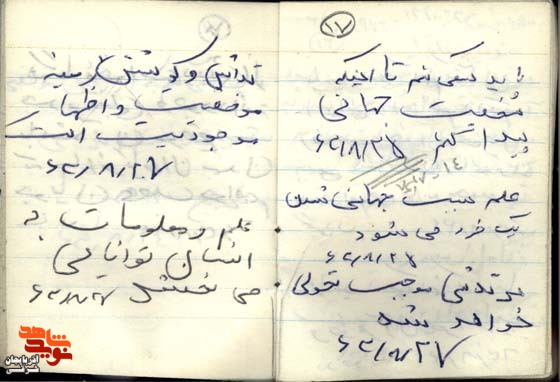 ۱۷
باید سعی کنم تا اینکه
موقعیت جهانی
پیدا کنم ۶۲/۸/۲۷
علم سبب جهانی شدن
یک فرد می شود
۶۲/۸/۲۷
هر تلاشی موجب تحولی
خواهد شد
۶۲/۸/۲۷
تلاش و کوشش زمینه
موفقیت و اظهار
موجودیت است
۶۲/۸/۲۷
علم و معلومات به
انسان توانایی
می بخشد ۶۲/۸/۲۷
شاهد
نوید
آذربایجان